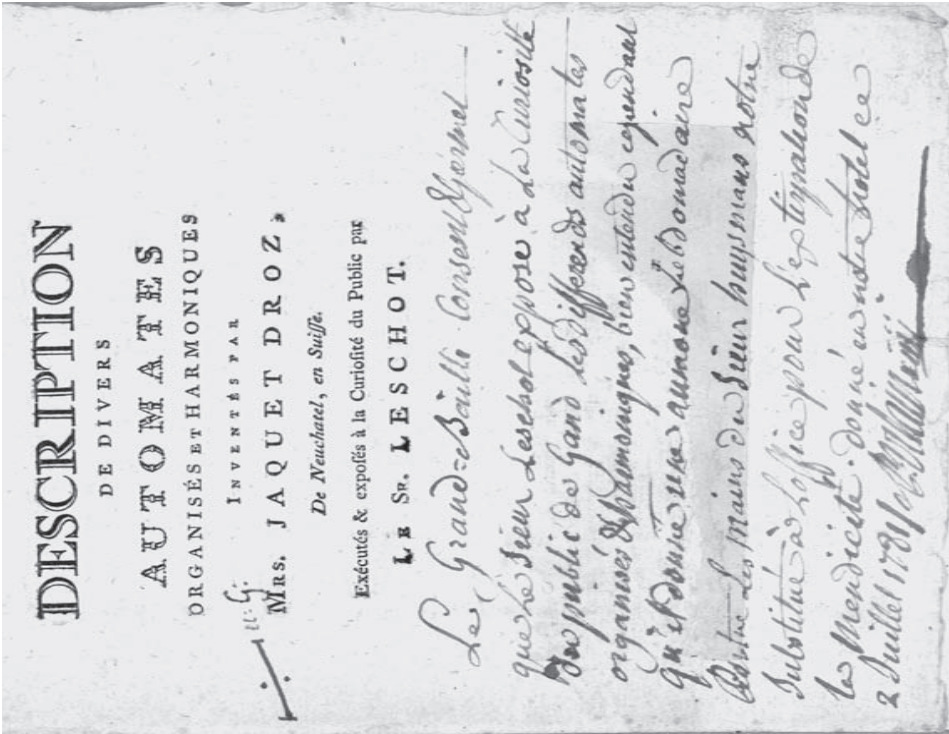 DESCRIPTION
DE DIVERS
AUTOMATES
ORGANISÉS ET HARMONIQUES
INVENTÉS PAR
MRS. JAQUET DROZ,
De Neuchatel, en Suiſſe.
Exécutés & expoſés à la Curioſité du Public par
LE SR. LESCHOT.
Le Grand=Bailli Consent & permet
que Le Sieur Leschot expose à La Curiosité
du public de Gand les differends automates
organises & harmoniques, bien entendu cependant
qu'il donne une aumone hebdomadaire
Es mains du Sieur huysmans notre
Substitué à L'office pour L'extirpation de
la Mendicité. donné en notre hotel ce
2 Juillet 1781